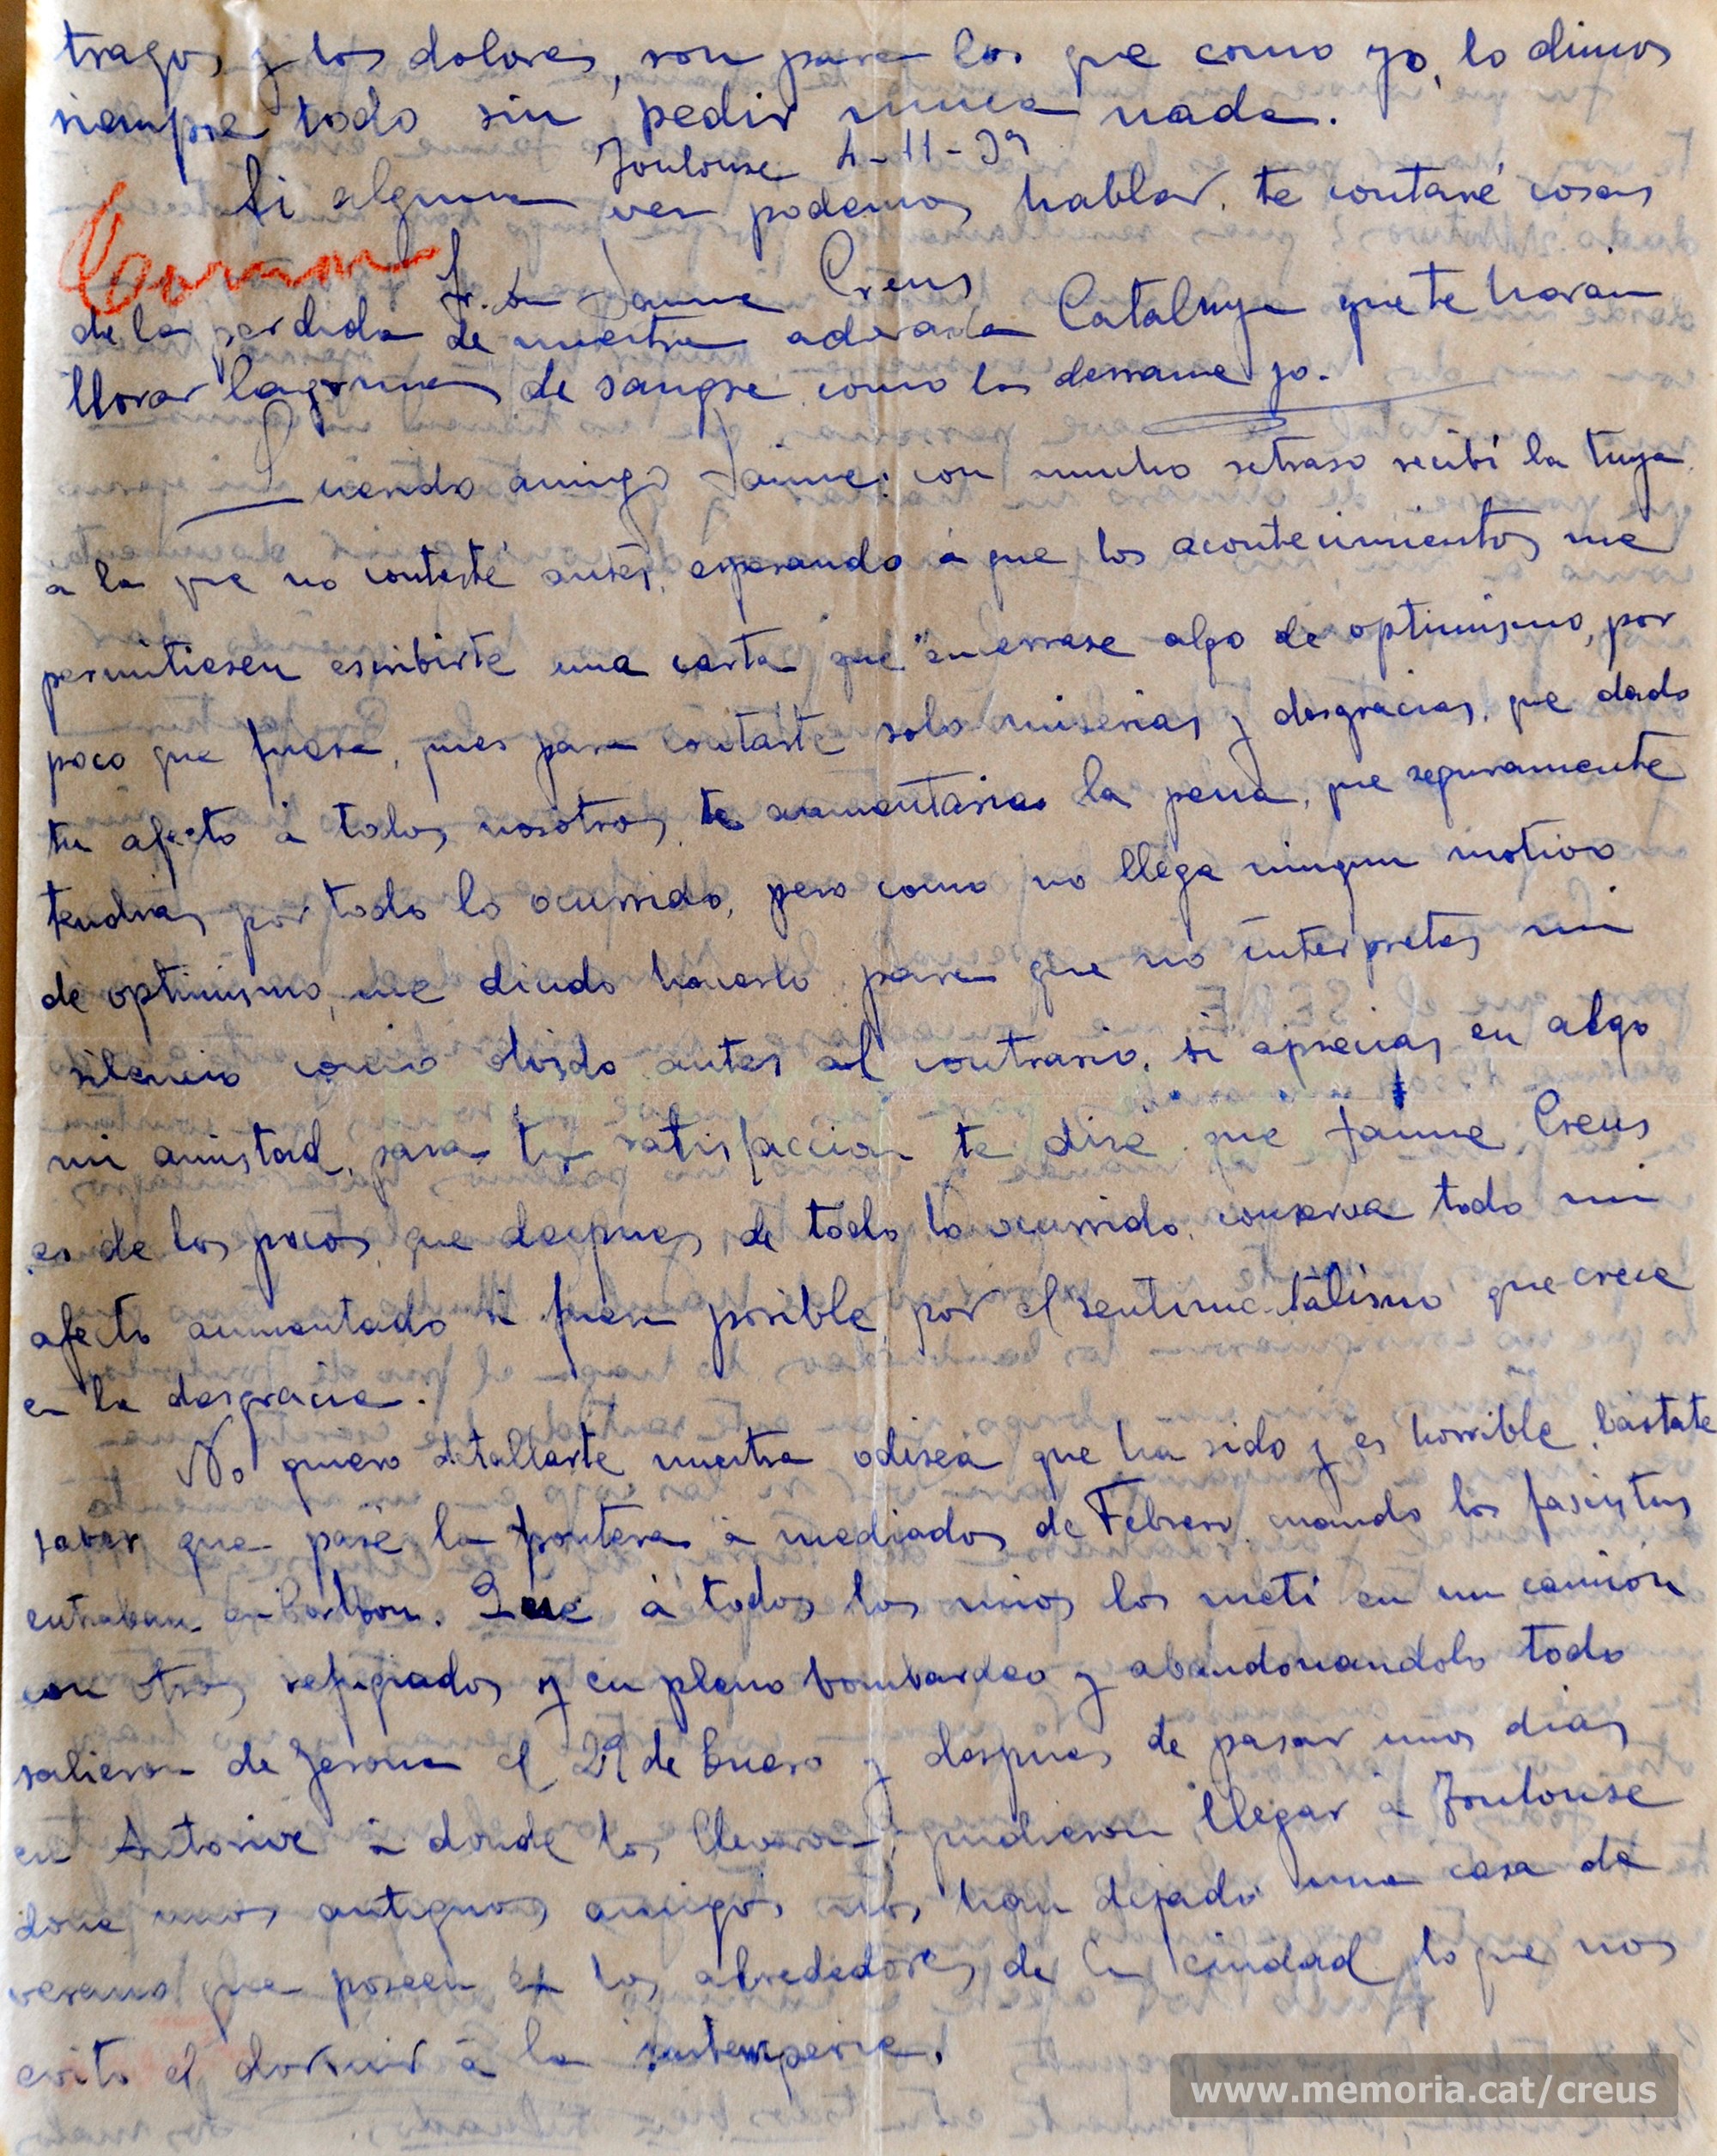 tragos y los dolores, son para los que como yo, lo dimos
siempre todo sin pedir nunca nada.
Toulouse 4-11-39
Si alguna vez podemos hablar, te contaré cosas
Sr. Jaume Creus
de la perdida de nuestra adorada Catalunya que te haran
llorar lagrimas de sangre como las derrame yo.
Querido amigo Jaime: con mucho retraso recibí la tuya
á la que no contesté antes, esperando á que los acontecimientos me
permitiesen escribirte una carta que encerrase algo de optimismo, por
poco que fuera, pues para contarte solo miserias y desgracias, que dado
tu afecto á todos nosotros, te aumentaria la pena, que seguramente
tendras por todo lo ocurrido, pero como no llega ningun motivo
de optimismo, me decido hacerlo para que no interpretes mi
silencio como olvido antes al contrario, si aprecias en algo
mi amistad, para tu satisfaccion te diré que Jaume Creus
es de los pocos, que despues de todo lo ocurrido, conserva todo mi
afecto aumentado si fuera posible, por el sentimetalismo que crece
en la desgracia.
No quiero detallarte nuestra odisea que ha sido y es horrible, bastate
saber que pasé la frontera á mediados de Febrero, cuando los fascistas
entraban en Portbou. Que á todos los mios los metí en un camión
con otros refugiados y en pleno bombardeo y abandonandolo todo
salieron de Jerona el 29 de Enero y despues de pasar unos dias
en Auterive á donde los llevaron, pudieron llegar á Toulouse
done unos antiguos amigos nos han dejado una casa de
verano que poseen en los alrededores de la ciudad lo que nos
evito el dormir á la intemperie.
www.memoria.cat/creus